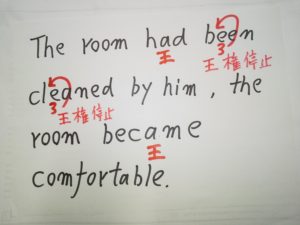 The room had been
王 3 王権停止
cleaned by him, the
3 王権停止
room became
王
comfortable.